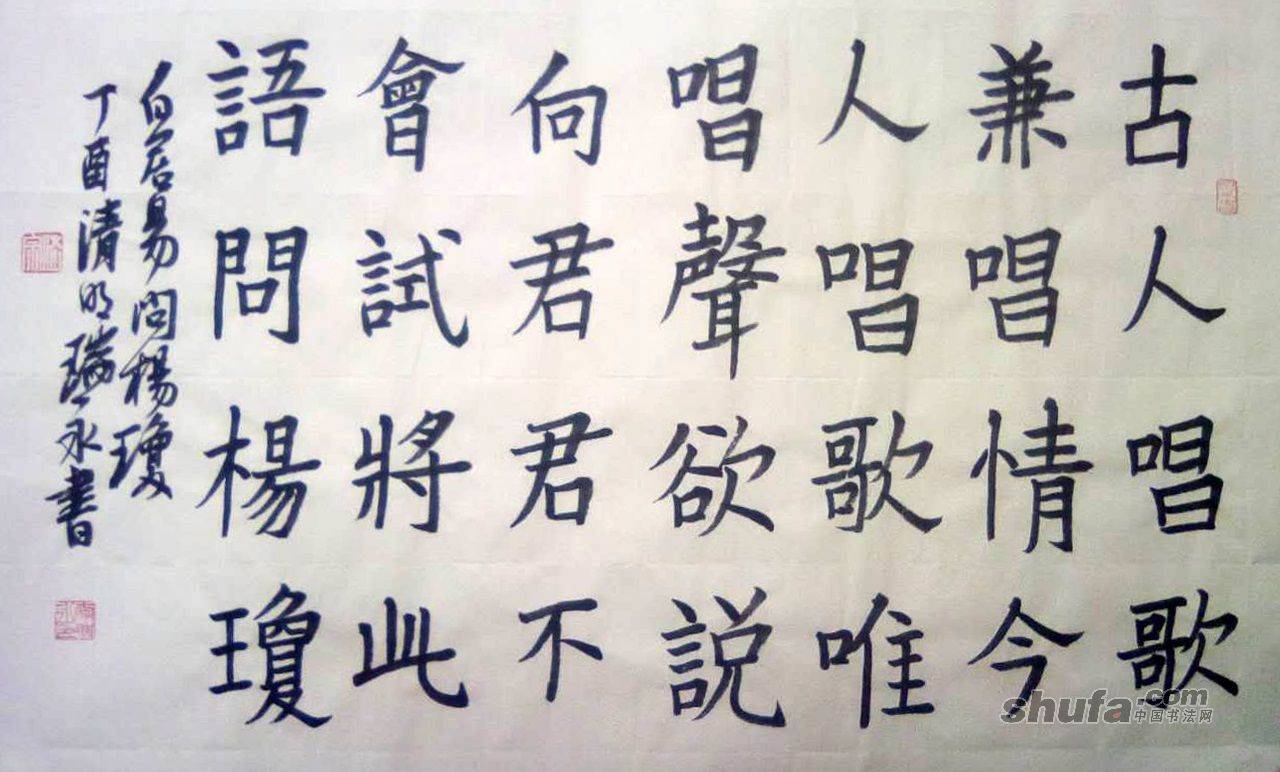 古人唱歌
兼唱情今
人唱歌唯
唱聲欲説
向君君不
會試將此
語問楊瓊
白居易問楊瓊
丁酉清明瑞永書
shufa.com
中国书法网